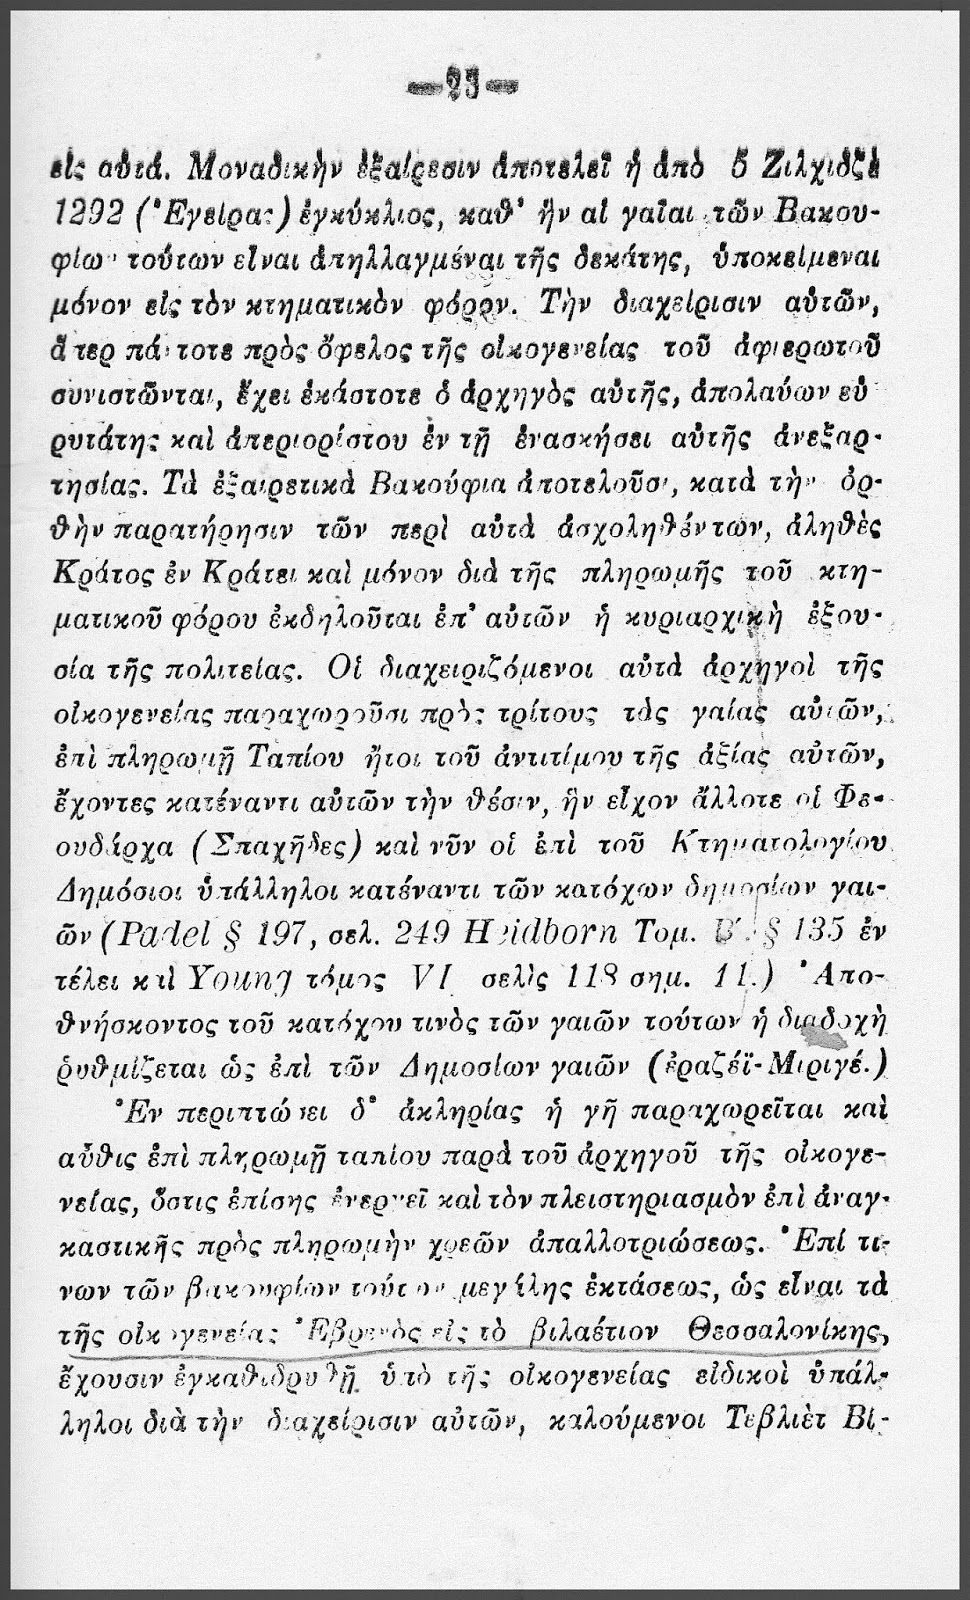 —23—
εἰς αὐτά. Μοναδικὴν ἐξαίρεσιν ἀποτελεῖ ἡ ἀπὸ 5 Ζιλχιδζὲ
1292 (Ἐγείρας) ἐγκύκλιος, καθ' ἣν αἱ γαῖαι τῶν Βακου-
φίων τούτων εἶναι ἀπηλλαγμέναι τῆς δεκάτης, ὑποκείμεναι
μόνον εἰς τὸν κτηματικὸν φόρον. Τὴν διαχείρισιν αὐτῶν,
ἅτερ πάντοτε πρὸς ὄφελος τῆς οἰκογενείας τοῦ ἀφιερωτοῦ
συνιστῶνται, ἔχει ἑκάστοτε ὁ ἀρχηγὸς αὐτῆς, ἀπολαύων εὐ
ρυτάτης καὶ ἀπεριορίστου ἐν τῇ ἐνασκήσει αὐτῆς ἀνεξαρ-
τησίας. Τὰ ἐξαιρετικὰ Βακούφια ἀποτελοῦσι, κατὰ τὴν ὀρ-
θὴν παρατήρησιν τῶν περὶ αὐτὰ ἀσχοληθέντων, ἀληθὲς
Κράτος ἐν Κράτει καὶ μόνον διὰ τῆς πληρωμῆς τοῦ κτη-
ματικοῦ φόρου ἐκδηλοῦται ἐπ' αὐτῶν ἡ κυριαρχικὴ ἐξου-
σία τῆς πολιτείας. Οἱ διαχειριζόμενοι αὐτὰ ἀρχηγοὶ τῆς
οἰκογενείας παραχωροῦσι πρὸς τρίτους τὰς γαίας αὐτῶν,
ἐπὶ πληρωμῇ Ταπίου ἤτοι τοῦ ἀντιτίμου τῆς ἀξίας αὐτῶν,
ἔχοντες κατέναντι αὐτῶν τὴν θέσιν, ἣν εἶχον ἄλλοτε οἱ Φε-
ουδάρχα (Σπαχῆδες) καὶ νῦν οἱ ἐπὶ τοῦ Κτηματολογίου
Δημόσιοι ὑπάλληλοι κατέναντι τῶν κατόχων δημοσίων γαι-
ῶν (Padel § 197, σελ. 249 Heidborn Τομ. Β'. § 135 ἐν
τέλει καὶ Young τόμος VI σελὶς 118 σημ. 11.) Ἀπο-
θνήσκοντος τοῦ κατόχου τινὸς τῶν γαιῶν τούτων ἡ διαδοχὴ
ῥυθμίζεται ὡς ἐπὶ τῶν Δημοσίων γαιῶν (ἐραζέϊ-Μιριγέ.)
Ἐν περιπτώσει δ' ἀκληρίας ἡ γῆ παραχωρεῖται καὶ
αὖθις ἐπὶ πληρωμῇ ταπίου παρὰ τοῦ ἀρχηγοῦ τῆς οἰκογε-
νείας, ὅστις ἐπίσης ἐνεργεῖ καὶ τὸν πλειστηριασμὸν ἐπὶ ἀναγ-
καστικῆς πρὸς πληρωμὴν χρεῶν ἀπαλλοτριώσεως. Ἐπί τι-
νων τῶν βακουφίων τούτων μεγάλης ἐκτάσεως, ὡς εἶναι τὰ
τῆς οἰκογενείας Ἐβρενὸς εἰς τὸ βιλαέτιον Θεσσαλονίκης,
ἔχουσιν ἐγκαθιδρυθῇ ὑπὸ τῆς οἰκογενείας εἰδικοὶ ὑπάλ-
ληλοι διὰ τὴν διαχείρισιν αὐτῶν, καλούμενοι Τεβλιὲτ Βί-